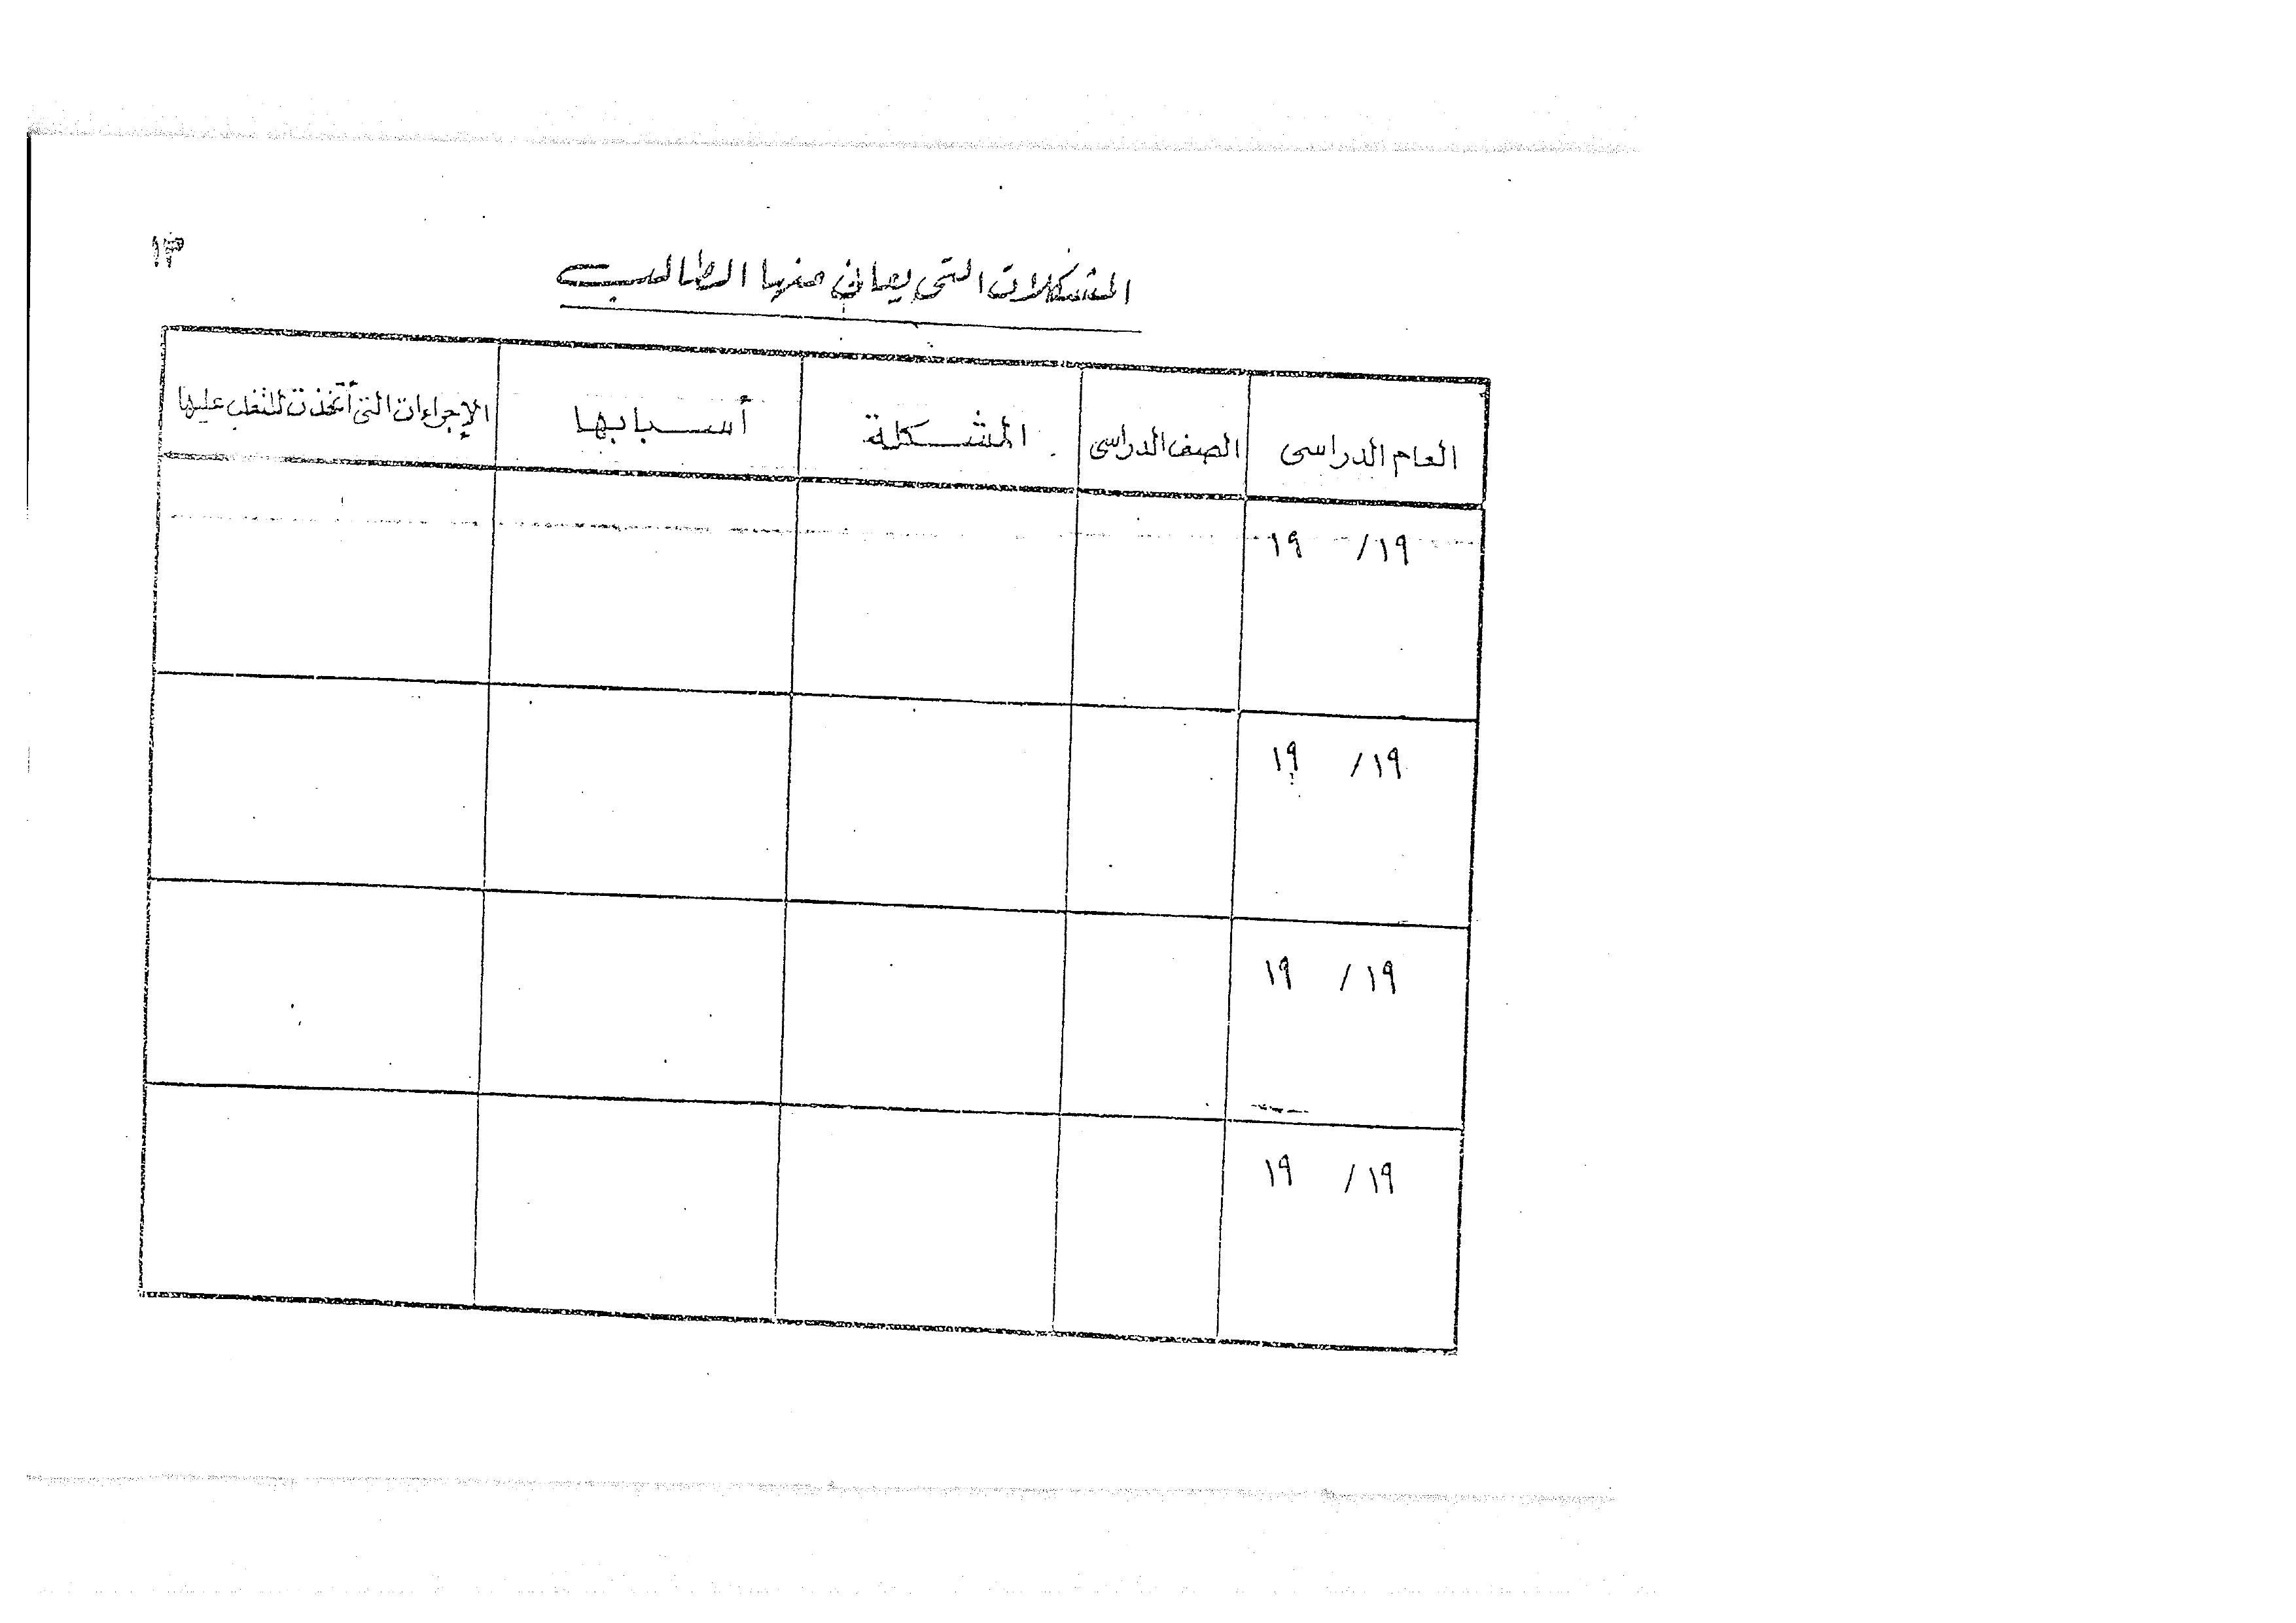 ١٣
المشكلات التى يعانى منها الطالب
العام الدراسى الصف الدراسى المشكلة أسبابها الإجراءات التى أتخذت للتغلب عليها
١٩ / ١٩
١٩ / ١٩
١٩ / ١٩
١٩ / ١٩